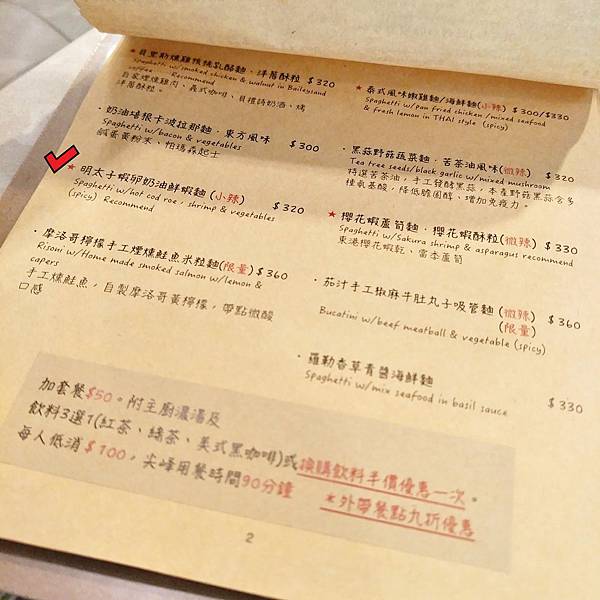 ★貝里斯燻雞核桃乳酪麵．洋蔥酥粒 $320
Spaghetti w/smoked chicken & walnut in Baileysand
coffee Recommend
自家煙燻雞肉、義式咖啡、貝禮詩奶酒、烤
洋蔥酥粒。
．奶油培根卡波拉那麵．東方風味 $300
Spaghetti w/bacon & vegetables
鹹蛋黃粉末、帕瑪森起士
★明太子蝦卵奶油鮮蝦麵(小辣) $320
Spaghetti w/hot cod roe, shrimp & vegetables
(spicy) Recommend
．摩洛哥檸檬手工煙燻鮭魚米粒麵(限量) $360
Risoni w/Home made smoked salmon w/lemon &
capers
手工燻鮭魚，自製摩洛哥黃檸檬，帶點微酸
口感
★泰式風味嫩雞麵/海鮮麵(小辣) $300/$330
Spaghetti w/pan fried chicken /mixed seafood
& fresh lemon in THAI style (spicy)
．黑蒜野菇蔬菜麵．苦茶油風味(微辣) $320
Tea tree seeds/black garlic w/mixed mushroom
特選苦茶油，手工發酵黑蒜，本產野菇黑蒜含多
種氨基酸，降低膽固醇、增加免疫力。
★櫻花蝦蘆筍麵．櫻花蝦酥粒(微辣) $330
Spaghetti w/Sakura shrimp & asparagus recommend
東港櫻花蝦乾、當季蘆筍
．茄汁手工椒麻牛肚丸子吸管麵(微辣) $360
(限量)
Bucatini w/beef meatball & vegetable (spicy)
．羅勒香草青醬海鮮麵 $330
Spaghetti w/mix seafood in basil sauce
加套餐$50。附主廚濃湯及
飲料3選1(紅茶、綠茶、美式黑咖啡)或換購飲料半價優惠一次。
每人低消$100，尖峰用餐時間90分鐘
★外帶餐點九折優惠
2